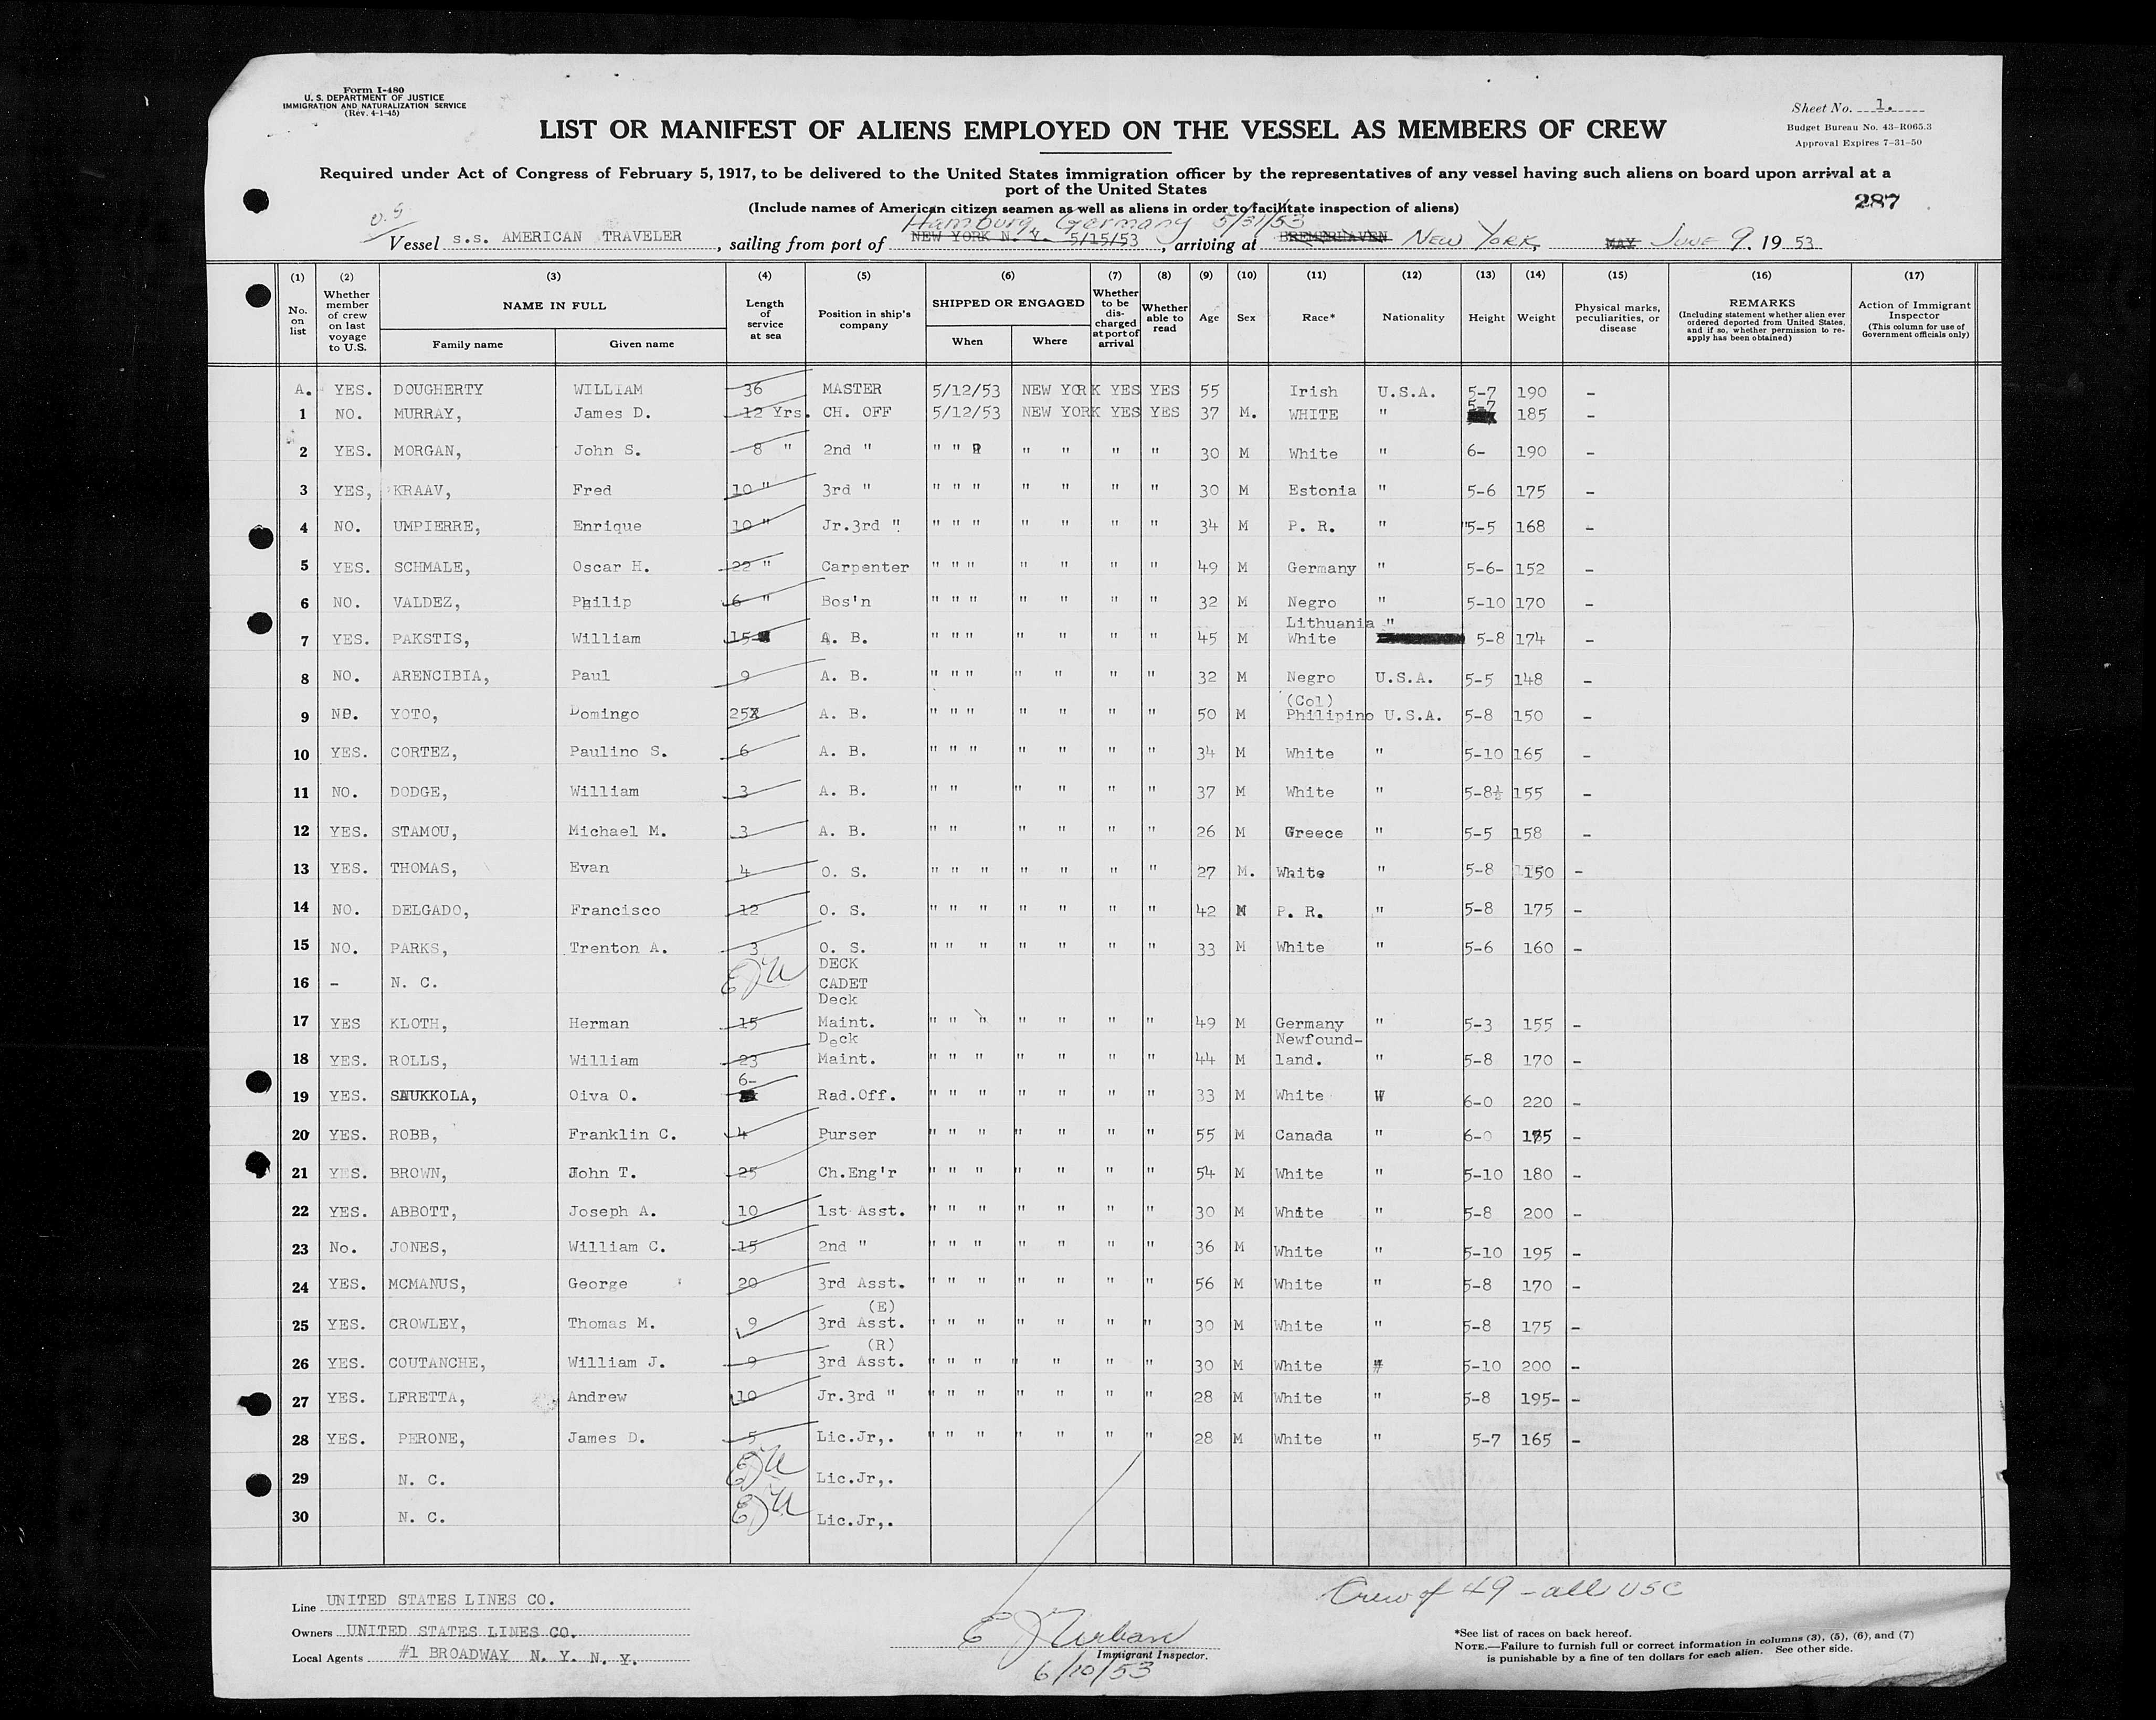 Form I-480
U. S. DEPARTMENT OF JUSTICE
IMMIGRATION AND NATURALIZATION SERVICE
(Rev. 4-1-45)
Sheet No. 1.
Budget Bureau No. 43-R065.3
Approval Expires 7-31-50
LIST OR MANIFEST OF ALIENS EMPLOYED ON THE VESSEL AS MEMBERS OF CREW
Required under Act of Congress of February 5, 1917, to be delivered to the United States immigration officer by the representatives of any vessel having such aliens on board upon arrival at a
port of the United States
(Include names of American citizen seamen as well as aliens in order to facilitate inspection of aliens)
287
U.S
Hamburg, Germany 5/31/53
Vessel s.s. AMERICAN TRAVELER, sailing from port of NEW YORK N. Y. 5/15/53, arriving at BREMERHAVEN NEW YORK, MAY JUNE 9. 19 53
(1) (2) (3) (4) (5) (6) (7) (8) (9) (10) (11) (12) (13) (14) (15) (16) (17)
No. on list Whether member of crew on last voyage to U.S. NAME IN FULL Family name Given name Length of service at sea Position in ship's company SHIPPED OR ENGAGED When Where Whether to be discharged at port of arrival Whether able to read Age Sex Race* Nationality Height Weight Physical marks, peculiarities, or disease REMARKS (Including statement whether alien ever ordered deported from United States, and if so, whether permission to re-apply has been obtained) Action of Immigrant Inspector (This column for use of Government officials only)
A. YES. DOUGHERTY WILLIAM 36 MASTER 5/12/53 NEW YORK YES YES 55 Irish U.S.A. 5-7 190 -
1 NO. MURRAY, James D. 12 Yrs. CH. OFF 5/12/53 NEW YORK YES YES 37 M. WHITE " 5-7 185 -
2 YES. MORGAN, John S. 8 " 2nd " " " " " " " 30 M White " 6- 190 -
3 YES, KRAAV, Fred 10 " 3rd " " " " " " " " 30 M Estonia " 5-6 175 -
4 NO. UMPIERRE, Enrique 10 " Jr.3rd " " " " " " " " 34 M P. R. " "5-5 168 -
5 YES. SCHMALE, Oscar H. 22 " Carpenter " " " " " " " 49 M Germany " 5-6- 152 -
6 NO. VALDEZ, Philip 6 " Bos'n " " " " " " " 32 M Negro " 5-10 170 -
Lithuania "
7 YES. PAKSTIS, William 15 A. B. " " " " " " " 45 M White 5-8 174 -
8 NO. ARENCIBIA, Paul 9 A. B. " " " " " " " 32 M Negro U.S.A. 5-5 148 -
(Col)
9 NO. YOTO, Domingo 25 A. B. " " " " " " " 50 M Philipino U.S.A. 5-8 150 -
10 YES. CORTEZ, Paulino S. 6 A. B. " " " " " " " 34 M White " 5-10 165 -
11 NO. DODGE, William 3 A. B. " " " " " " 37 M White " 5-8½ 155 -
12 YES. STAMOU, Michael M. 3 A. B. " " " " " " 26 M Greece " 5-5 158 -
13 YES. THOMAS, Evan 4 O. S. " " " " " " " 27 M. White " 5-8 150 -
14 NO. DELGADO, Francisco 12 O. S. " " " " " " " 42 M P. R. " 5-8 175 -
15 NO. PARKS, Trenton A. 3 O. S. " " " " " " " 33 M White " 5-6 160 -
DECK
16 - N. C. EJU CADET
Deck
17 YES KLOTH, Herman 15 Maint. " " " " " " " 49 M Germany " 5-3 155 -
Deck Newfound-
18 YES. ROLLS, William 23 Maint. " " " " " " " 44 M land. " 5-8 170 -
6-
19 YES. SAUKKOLA, Oiva O. Rad.Off. " " " " " " " 33 M White " 6-0 220 -
20 YES. ROBB, Franklin C. 4 Purser " " " " " " " 55 M Canada " 6-0 -
21 YES. BROWN, John T. 25 Ch.Eng'r " " " " " " " 54 M White " 5-10 180 -
22 YES. ABBOTT, Joseph A. 10 1st Asst. " " " " " " " 30 M White " 5-8 200 -
23 No. JONES, William C. 15 2nd " " " " " " " " 36 M White " 5-10 195 -
24 YES. MCMANUS, George 20 3rd Asst. " " " " " " " 56 M White " 5-8 170 -
(E)
25 YES. CROWLEY, Thomas M. 9 3rd Asst. " " " " " " " 30 M White " 5-8 175 -
(R)
26 YES. COUTANCHE, William J. 9 3rd Asst. " " " " " " " 30 M White " 5-10 200 -
27 YES. LFRETTA, Andrew 10 Jr.3rd " " " " " " " " 28 M White " 5-8 195- -
28 YES. PERONE, James D. 5 Lic.Jr,. " " " " " " " 28 M White " 5-7 165 -
29 N. C. EJU Lic.Jr,.
30 N. C. EJU Lic.Jr,.
Line UNITED STATES LINES CO.
Owners UNITED STATES LINES CO.
Local Agents #1 BROADWAY N. Y. N. Y.
E J Urban
Immigrant Inspector.
6/10/53
Crew of 49 - all USC
*See list of races on back hereof.
NOTE.—Failure to furnish full or correct information in columns (3), (5), (6), and (7)
is punishable by a fine of ten dollars for each alien. See other side.